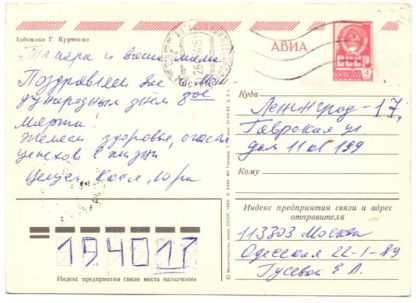 Художник Г. Куртенко
АВИА
СССР
ПОЧТА
4
Тамара и ваша мама
Поздравляем вас с Меж
дународным днем 8ое
Марта!
Желаем здоровья, счастья
успехов в жизни
Целуем Катя, Юра
Куда
Ленинград-17,
Гаврская ул.
дом 11 кв 189
Кому
Индекс предприятия связи и адрес
отправителя
113303 Москва
Одесская 22-1-89
Гусевой Е А.
194017
Индекс предприятия связи места назначения
© Министерство связи СССР, 1982.